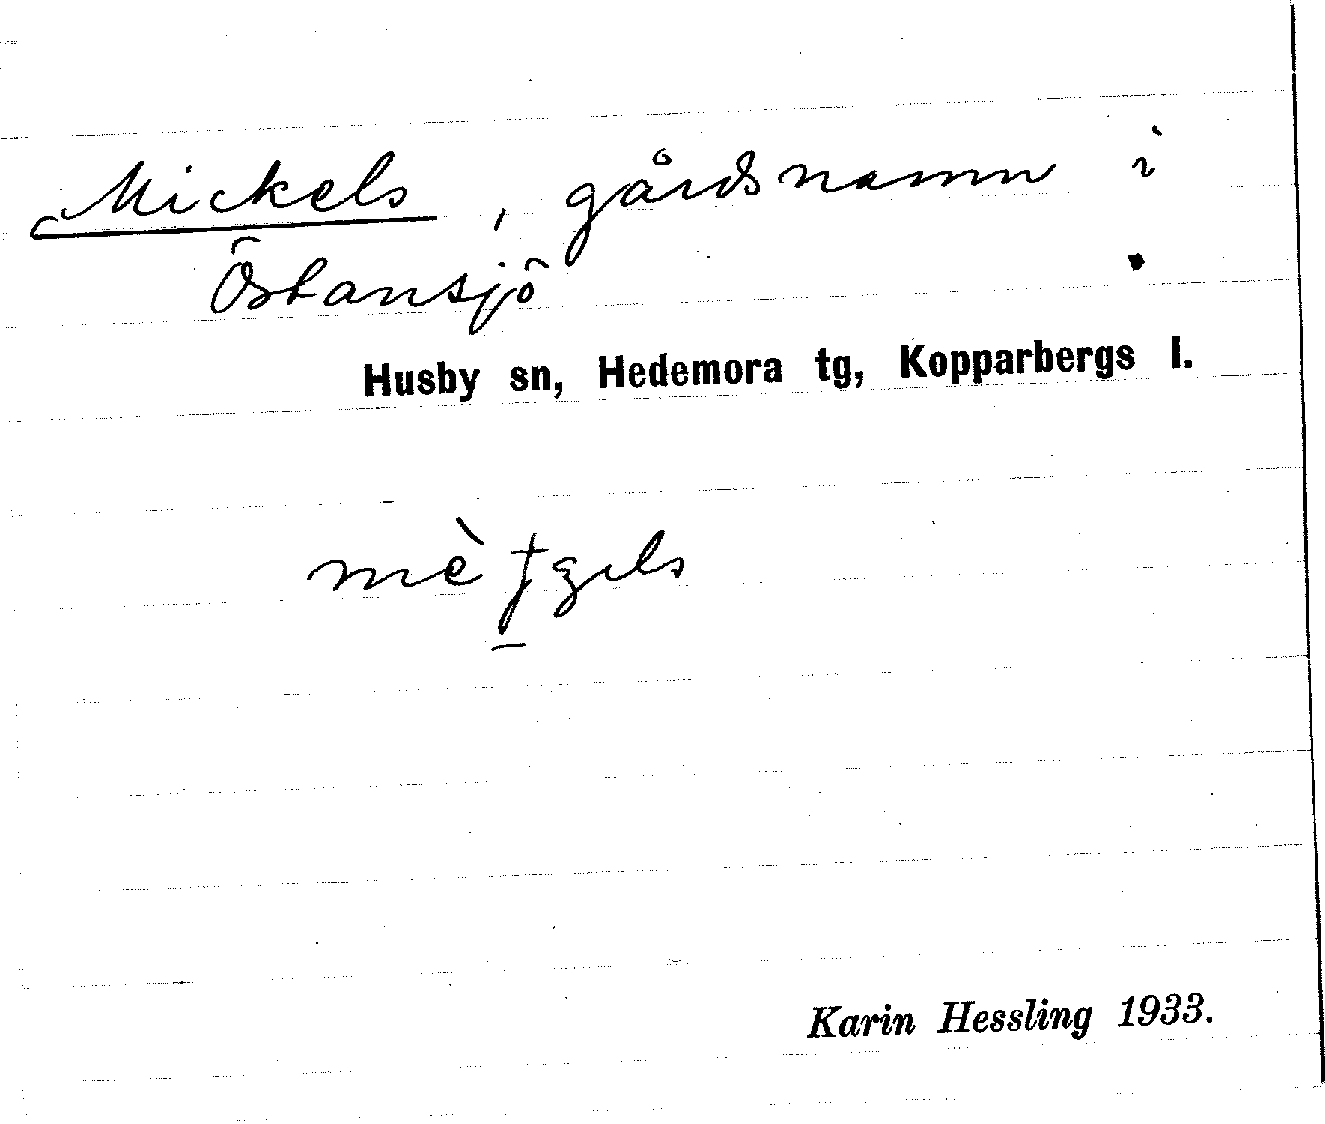 Mickels, gårdsnamn i
Östansjö
Husby sn, Hedemora tg, Kopparbergs l.
Karin Hessling 1933.